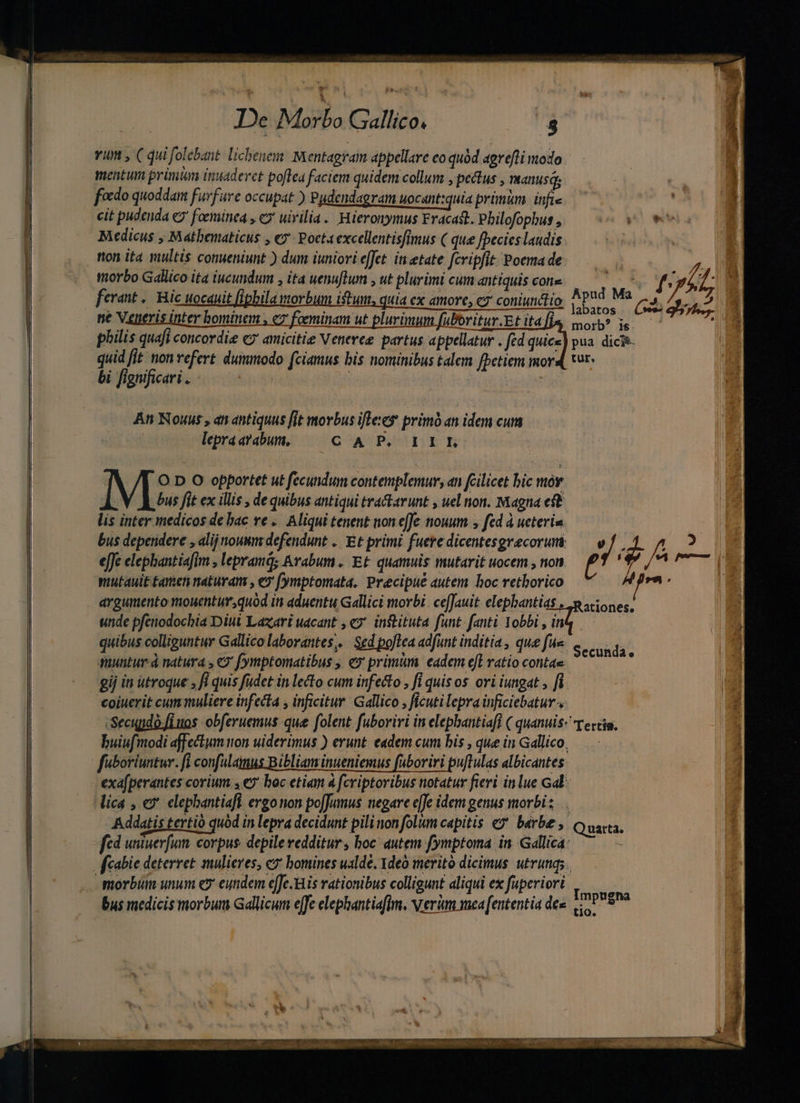 De Morbo Gallico. 8
rum, (qui solebant lichenem Mentagram appellare eo quòd agresti modo
mentum primùm inuaderet postea faciem quidem collum, pectus, manusq;
foedo quoddam furfure occupat) Pudendagram uocant: quia primùm infi=
cit pudenda & foeminea, & uirilia. Hieronymus Fracast. Philosophus,
Medicus, Mathematicus, & Poeta excellentissimus (que species laudis
non ita multis conueniunt) dum iuniori esset in etate scripsit Poema de
morbo Gallico ita iucundum, ita uenustum, ut plurimi cum antiquis con=
ferant. Hic uocauit siphila morbum istum, quia ex amore, & coniunctio
ne Veneris inter hominem, & foeminam ut plurimum suboritur. Et ita si
philis quasi concordie & amicitie Veneree partus appellatur. sed quic=
quid sit non refert dummodo sciamus his nominibus talem spetiem mor=
bi significari.
Apud Ma
labatos
morb' is
pua dici=
tur.
An Nouus, an antiquus sit morbus iste: & primò an idem cum
lepra arabum, CAP. IIII.
MODO opportet ut secundum contemplemur, an scilicet hic mor
bus sit ex illis, de quibus antiqui tractarunt, uel non. Magna est
lis inter medicos de hac re. Aliqui tenent non esse nouum, sed à ueteri=
bus dependere, alij nouum defendunt. Et primi fuere dicentes grecorum
esse elephantiasim, lepramq; Arabum. Et quamuis mutarit uocem, non
mutauit tamen naturam, & symptomata. Precipuè autem hoc rethorico
argumento mouentur, quòd in aduentu Gallici morbi cessauit elephantias,
unde psenodochia Diui Lazari uacant, & instituta sunt sancti Iobbi, in
quibus colliguntur Gallico laborantes, Sed postea adsunt inditia, que su=
muntur à natura, & symptomatibus, & primùm eadem est ratio conta=
gij in utroque, si quis sudet in lecto cum infecto, si quis os ori iungat, si
coiuerit cum muliere infecta, inficitur Gallico, sicuti lepra inficiebatur.
Secundò si nos obseruemus que solent suboriri in elephantiasi (quanuis
huiusmodi affectum non uiderimus) erunt eadem cum his, que in Gallico
suboriuntur. si consulamus Bibliam inueniemus suboriri pustulas albicantes
exasperantes corium, & hoc etiam à scriptoribus notatur fieri in lue Gal
lica, & elephantiasi ergo non possumus negare esse idem genus morbi:
Addatis tertiò quòd in lepra decidunt pili non solùm capitis & barbe,
sed uniuersum corpus depile redditur, hoc autem symptoma in Gallica
scabie deterret mulieres, & homines ualdè. Ideò meritò dicimus utrunq;
morbum unum & eundem esse. His rationibus colligunt aliqui ex superiori
bus medicis morbum Gallicum esse elephantiasim. Verùm mea sententia de=
Rationes.
Secunda.
Tertia.
Quarta.
Impugna
tio.